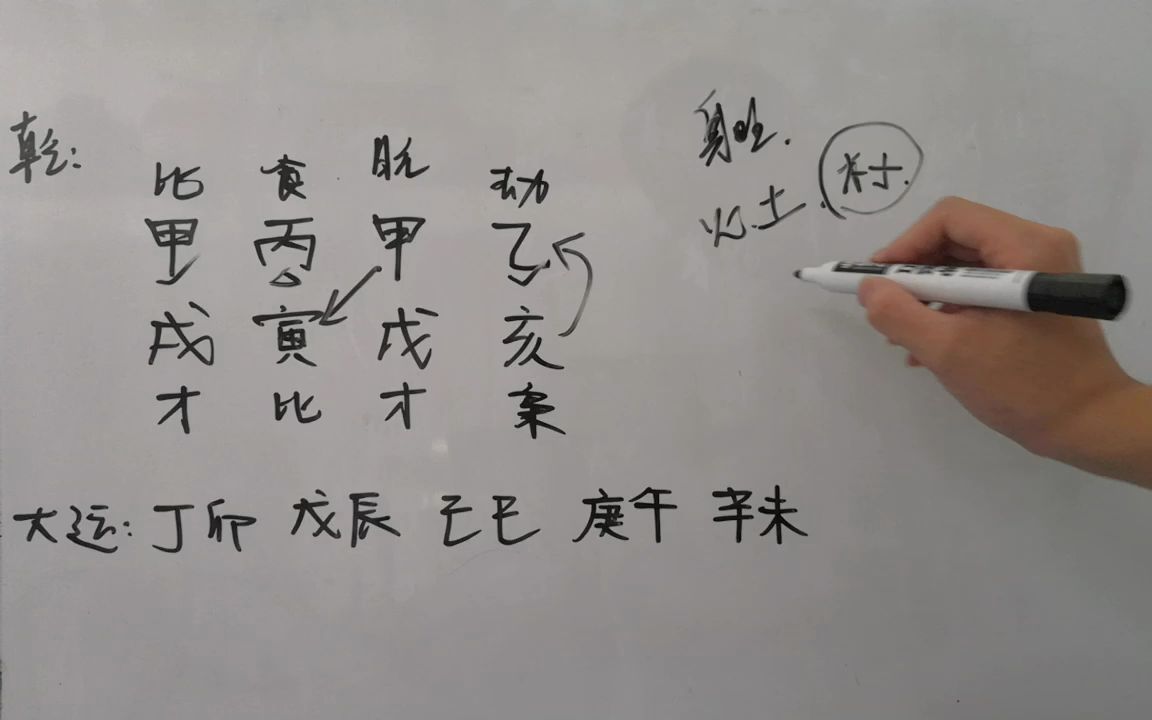 乾:
比 食 日元 劫
甲 丙 甲 乙
戌 寅 戌 亥
才 比 才 枭
大运: 丁卯 戊辰 己巳 庚午 辛未
身旺.
火.土.